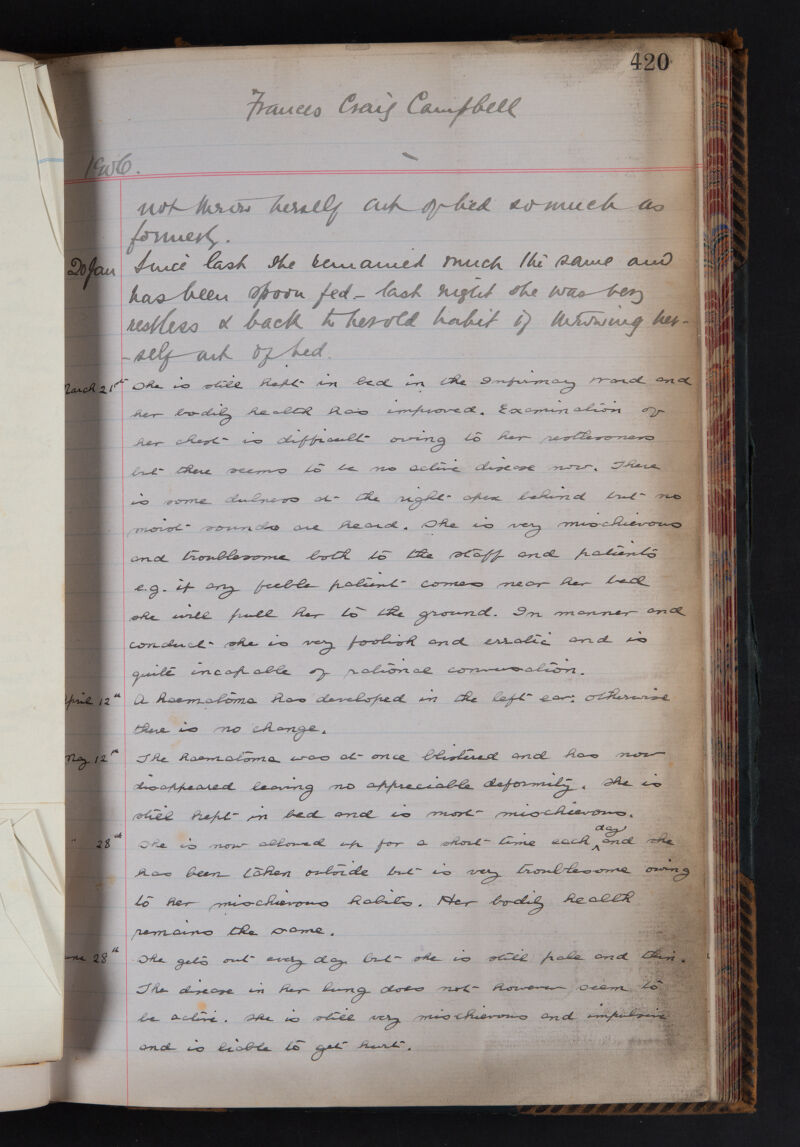 420
Frances Craig Campbell
1906.
not throw herself out of bed so much as
formerly.
20 Jan Since last she remained much the same and
has been spoon fed - last night she was very
restless & back to her old habit of throwing her-
-self out of bed.
March 21st She is still kept in bed in the Infirmary Ward and
her bodily health has improved. Examination of
her chest is difficult owing to her restlessness
but there seems to be no active disease now. There
is some dulness at the right apex behind but no
moist sounds are heard. She is very mischievous
and troublesome both to the staff and patients
e.g. if any feeble patient comes near her bed
she will pull her to the ground. In manner and
conduct she is very foolish and erratic and is
quite incapable of rational conversation.
April 12th A haematoma has developed in the left ear: otherwise
there is no change.
May 12th The haematoma was at once blistered and has now
disappeared leaving no appreciable deformity. She is
still kept in bed and is most mischievous.
" 28th She is now allowed up for a short time each day and she
has been taken outside but is very troublesome owing
to her mischievous habits. Her bodily health
remains the same.
June 28th She gets out every day but she is still pale and thin.
The disease in her lung does not however seem to
be active. She is still very mischievous and impulsive
and is liable to get hurt.